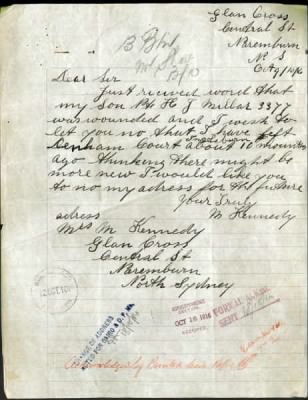 Glan Cross
Central St
Naremburn
N. S
Oct 9/16
B
Dear Sir
Just recived word that
my Son Pte H J Millar 3377
was wounded and I wish to
let you no that I have left
Denham Court about 10 mounths
ago thinking there might be
more new I would like you
to no my adress for the future
Your Truly
M Kennedy
adress
Mrs M Kennedy
Glan Cross
Central St
Naremburn
North Sydney
12 OCT 1916
CHANGE OF ADDRESS
NOTED FOR
OCT 16 1916
FORMAL ACK.
SENT
Acknowledged by